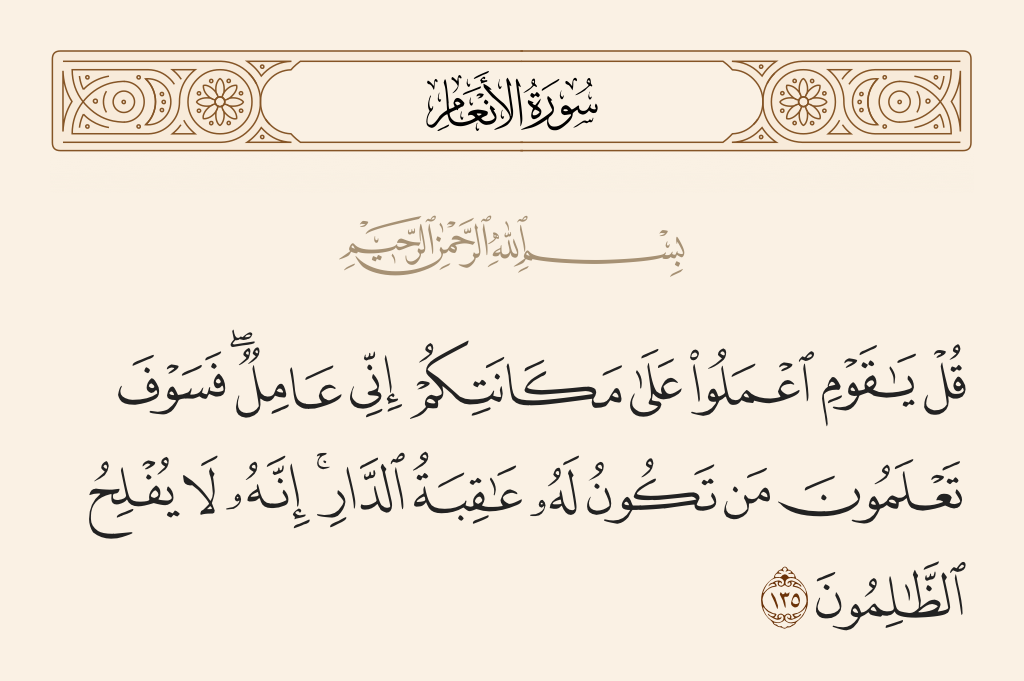 سُورَةُ الأَنْعَامِ
بِسْمِ ٱللَّهِ ٱلرَّحْمَٰنِ ٱلرَّحِيمِ
قُلْ يَـٰقَوْمِ ٱعْمَلُوا۟ عَلَىٰ مَكَانَتِكُمْ إِنِّى عَامِلٌ ۖ فَسَوْفَ
تَعْلَمُونَ مَن تَكُونُ لَهُۥ عَـٰقِبَةُ ٱلدَّارِ ۚ إِنَّهُۥ لَا يُفْلِحُ
ٱلظَّـٰلِمُونَ ١٣٥